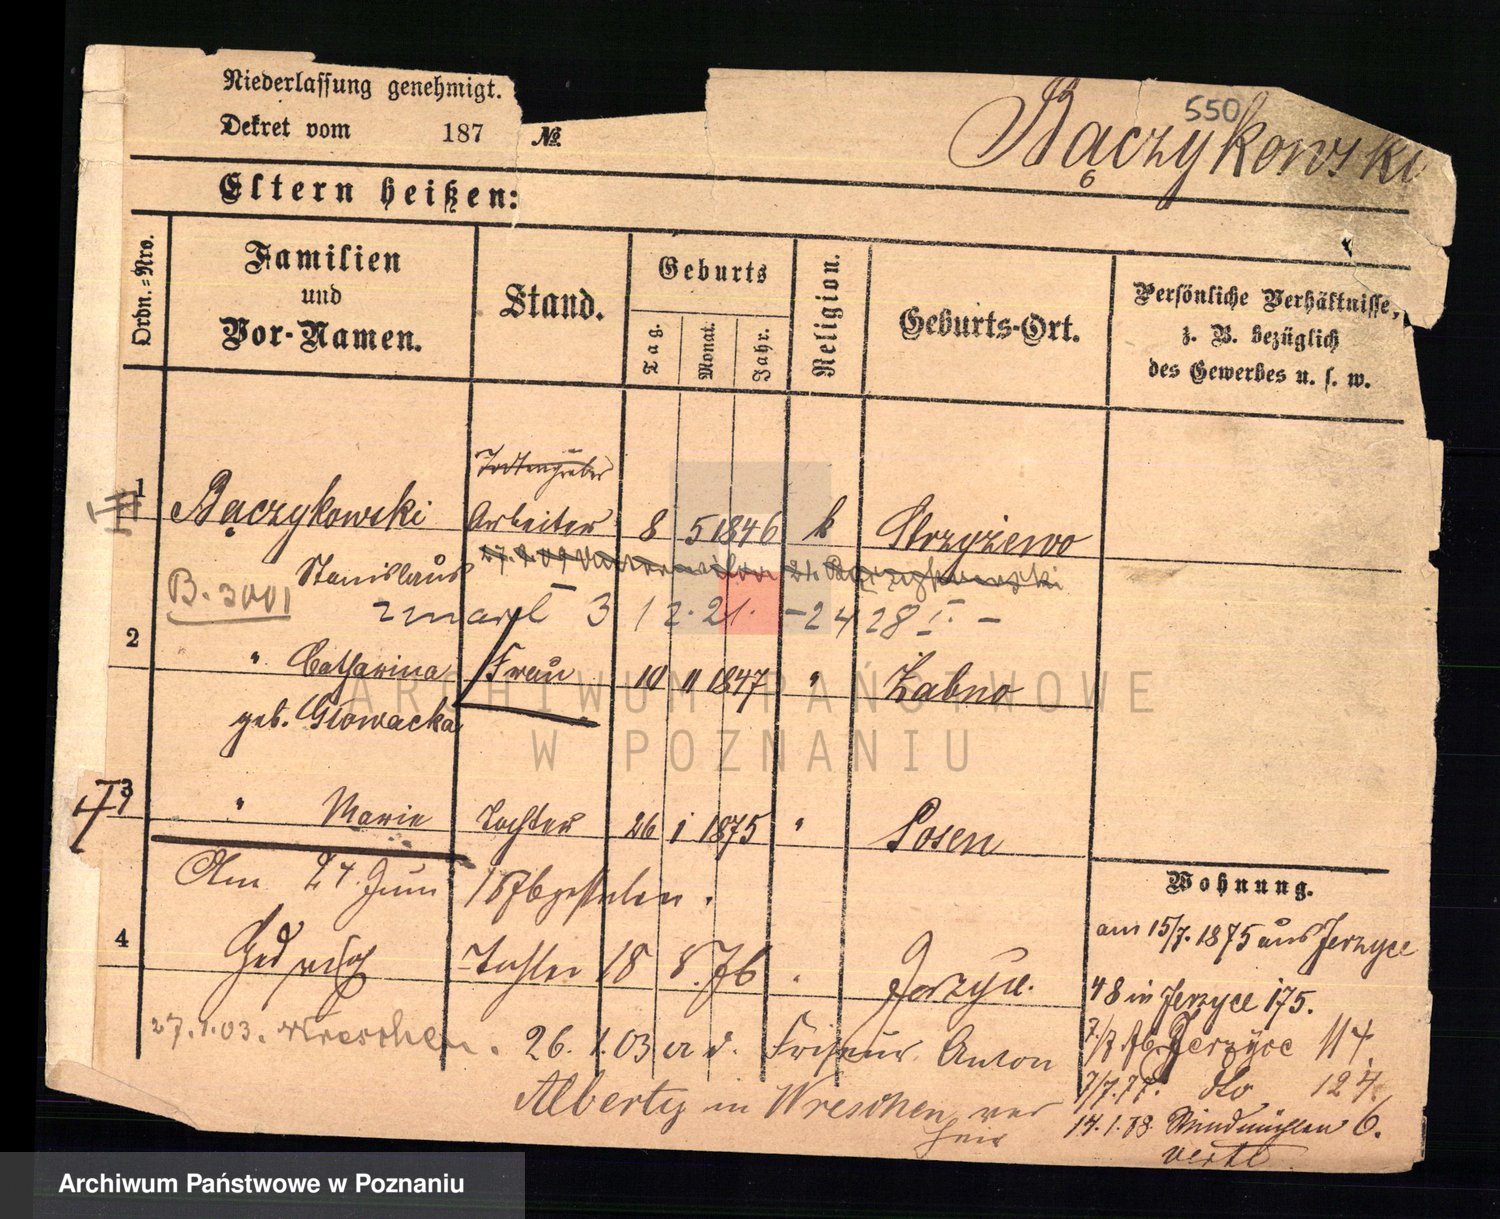 Niederlassung genehmigt.
Dekret vom 187 №
550
Bączykowski
Eltern heißen:
Ordn.-Nro.
Familien
und
Vor-Namen.
Stand.
Geburts
Tag.
Monat.
Jahr.
Religion.
Geburts-Ort.
Persönliche Verhältnisse,
z. B. bezüglich
des Gewerbes u. s. w.
Todtengräber
1 Bączykowski Arbeiter 8 5 1846 k Strzyżewo
Stanislaus
B. 3001
zmarł 3 12. 21. - 2428 I. -
2 " Catharina Frau 10 11 1847 " Żabno
geb. Głowacka
3 " Marie Tochter 26 1 1875 " Posen
Am 24 Juni 1876 gestorben.
4 Hedwig Tochter 18 8. 76 Jerzyce.
27.1.03. Wreschen.
26. 1. 03 a. d. Friseur Anton
Alberty in Wreschen ver
Wohnung.
am 15/7. 1875 aus Jerzyce
48 in Jerzyce 175.
76 Jerzyce 114.
7/7.77. dto 124.
14.1.78 Windmühlen 6.
ARCHIWUM PAŃSTWOWE
W POZNANIU
Archiwum Państwowe w Poznaniu